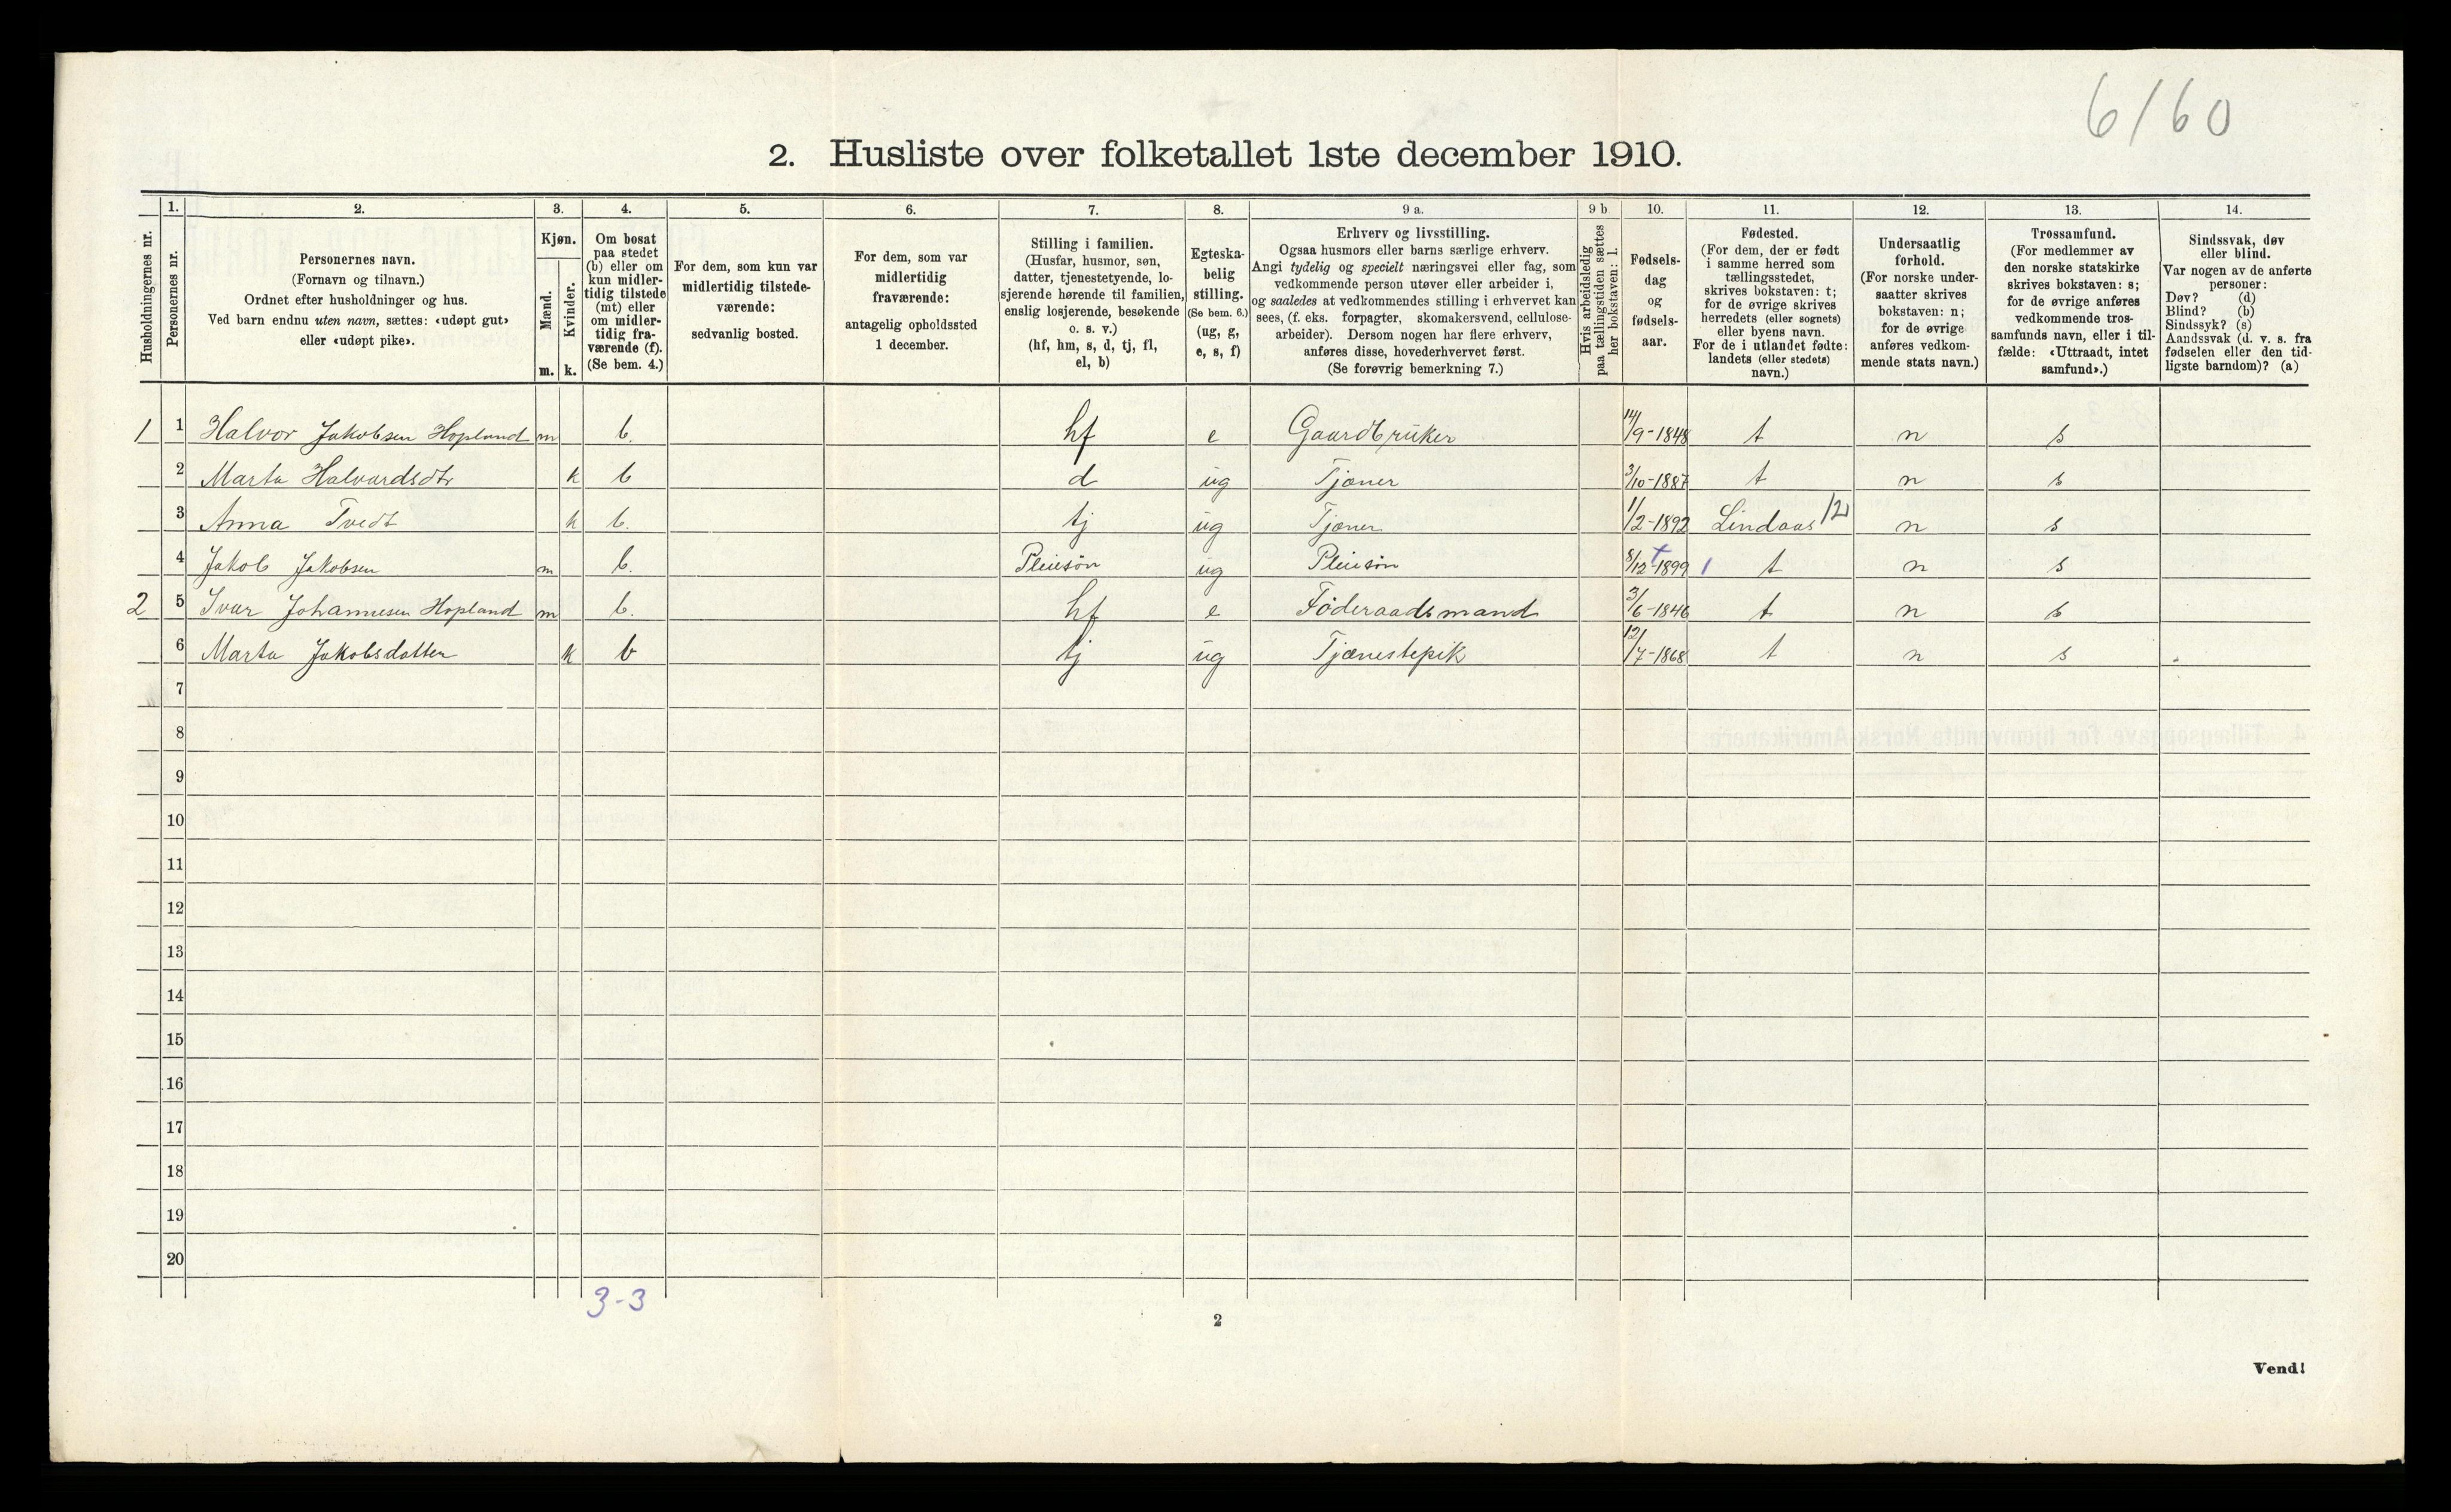 6/60
2. Husliste over folketallet 1ste december 1910.
Husholdningernes nr.
1. Personernes nr.
2. Personernes navn.
(Fornavn og tilnavn.)
Ordnet efter husholdninger og hus.
Ved barn endnu uten navn, sættes: «udøpt gut»
eller «udøpt pike».
3. Kjøn.
Mænd. m.
Kvinder. k.
4. Om bosat
paa stedet
(b) eller om
kun midler-
tidig tilstede
(mt) eller
om midler-
tidig fra-
værende (f).
(Se bem. 4.)
5. For dem, som kun var
midlertidig tilstede-
værende:
sedvanlig bosted.
6. For dem, som var
midlertidig
fraværende:
antagelig opholdssted
1 december.
7. Stilling i familien.
(Husfar, husmor, søn,
datter, tjenestetyende, lo-
sjerende hørende til familien,
enslig losjerende, besøkende
o. s. v.)
(hf, hm, s, d, tj, fl,
el, b)
8. Egteska-
belig
stilling.
(Se bem. 6.)
(ug, g,
e, s, f)
9 a. Erhverv og livsstilling.
Ogsaa husmors eller barns særlige erhverv.
Angi tydelig og specielt næringsvei eller fag, som
vedkommende person utøver eller arbeider i,
og saaledes at vedkommendes stilling i erhvervet kan
sees, (f. eks. forpagter, skomakersvend, cellulose-
arbeider). Dersom nogen har flere erhverv,
anføres disse, hovederhvervet først.
(Se forøvrig bemerkning 7.)
9 b Hvis arbeidsledig
paa tællingstiden sættes
her bokstaven: l.
10. Fødsels-
dag
og
fødsels-
aar.
11. Fødested.
(For dem, der er født
i samme herred som
tællingsstedet,
skrives bokstaven: t;
for de øvrige skrives
herredets (eller sognets)
eller byens navn.
For de i utlandet fødte:
landets (eller stedets)
navn.)
12. Undersaatlig
forhold.
(For norske under-
saatter skrives
bokstaven: n;
for de øvrige
anføres vedkom-
mende stats navn.)
13. Trossamfund.
(For medlemmer av
den norske statskirke
skrives bokstaven: s;
for de øvrige anføres
vedkommende tros-
samfunds navn, eller i til-
fælde: «Uttraadt, intet
samfund».)
14. Sindssvak, døv
eller blind.
Var nogen av de anførte
personer:
Døv? (d)
Blind? (b)
Sindssyk? (s)
Aandssvak (d. v. s. fra
fødselen eller den tid-
ligste barndom)? (a)
1 1 Halvor Jakobsen Hopland m b. hf e Gaardbruker 14/9-1848 t n s
2 Marta Halvardsdtr k b d ug Tjæner 3/10-1887 t n s
3 Anna Tvedt k b. tj ug Tjæner 1/2-1892 Lindaas 12 n s
4 Jakob Jakobsen m b. Pleiesön ug Pleiesön 8/12 1899 1 t n s
2 5 Ivar Johannesen Hopland m b. hf e Föderaadsmand 3/6-1846 t n s
6 Marta Jakobsdatter k b tj ug Tjænestepik 12/7-1868 t n s
7
8
9
10
11
12
13
14
15
16
17
18
19
20
3-3
2
Vend!